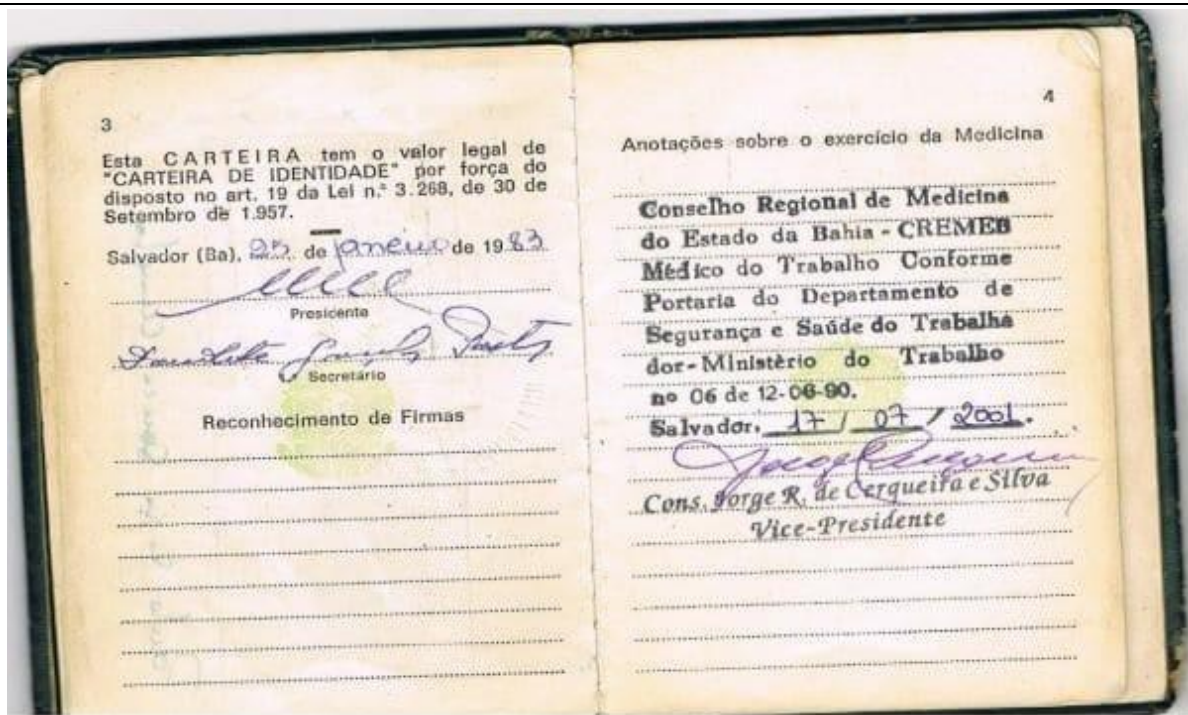 3
Esta CARTEIRA tem o valor legal de
"CARTEIRA DE IDENTIDADE" por força do
disposto no art. 19 da Lei n.º 3.268, de 30 de
Setembro de 1.957.
Salvador (Ba), 25 de janeiro de 1983
Presidente
Secretário
Reconhecimento de Firmas
4
Anotações sobre o exercício da Medicina
Conselho Regional de Medicina
do Estado da Bahia - CREMEB
Médico do Trabalho Conforme
Portaria do Departamento de
Segurança e Saúde do Trabalha
dor-Ministério do Trabalho
nº 06 de 12-06-90.
Salvador, 17 / 07 / 2001.
Cons. Jorge R. de Cerqueira e Silva
Vice-Presidente